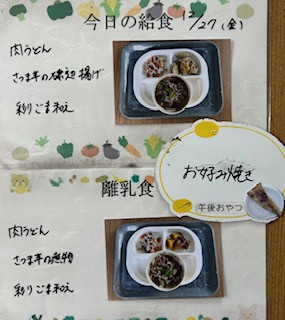 今日の給食 12/27 (金)
肉うどん
さつま芋の磯辺揚げ
彩りごま和え
お好み焼き
午後おやつ
離乳食
肉うどん
さつま芋の煮物
彩りごま和え